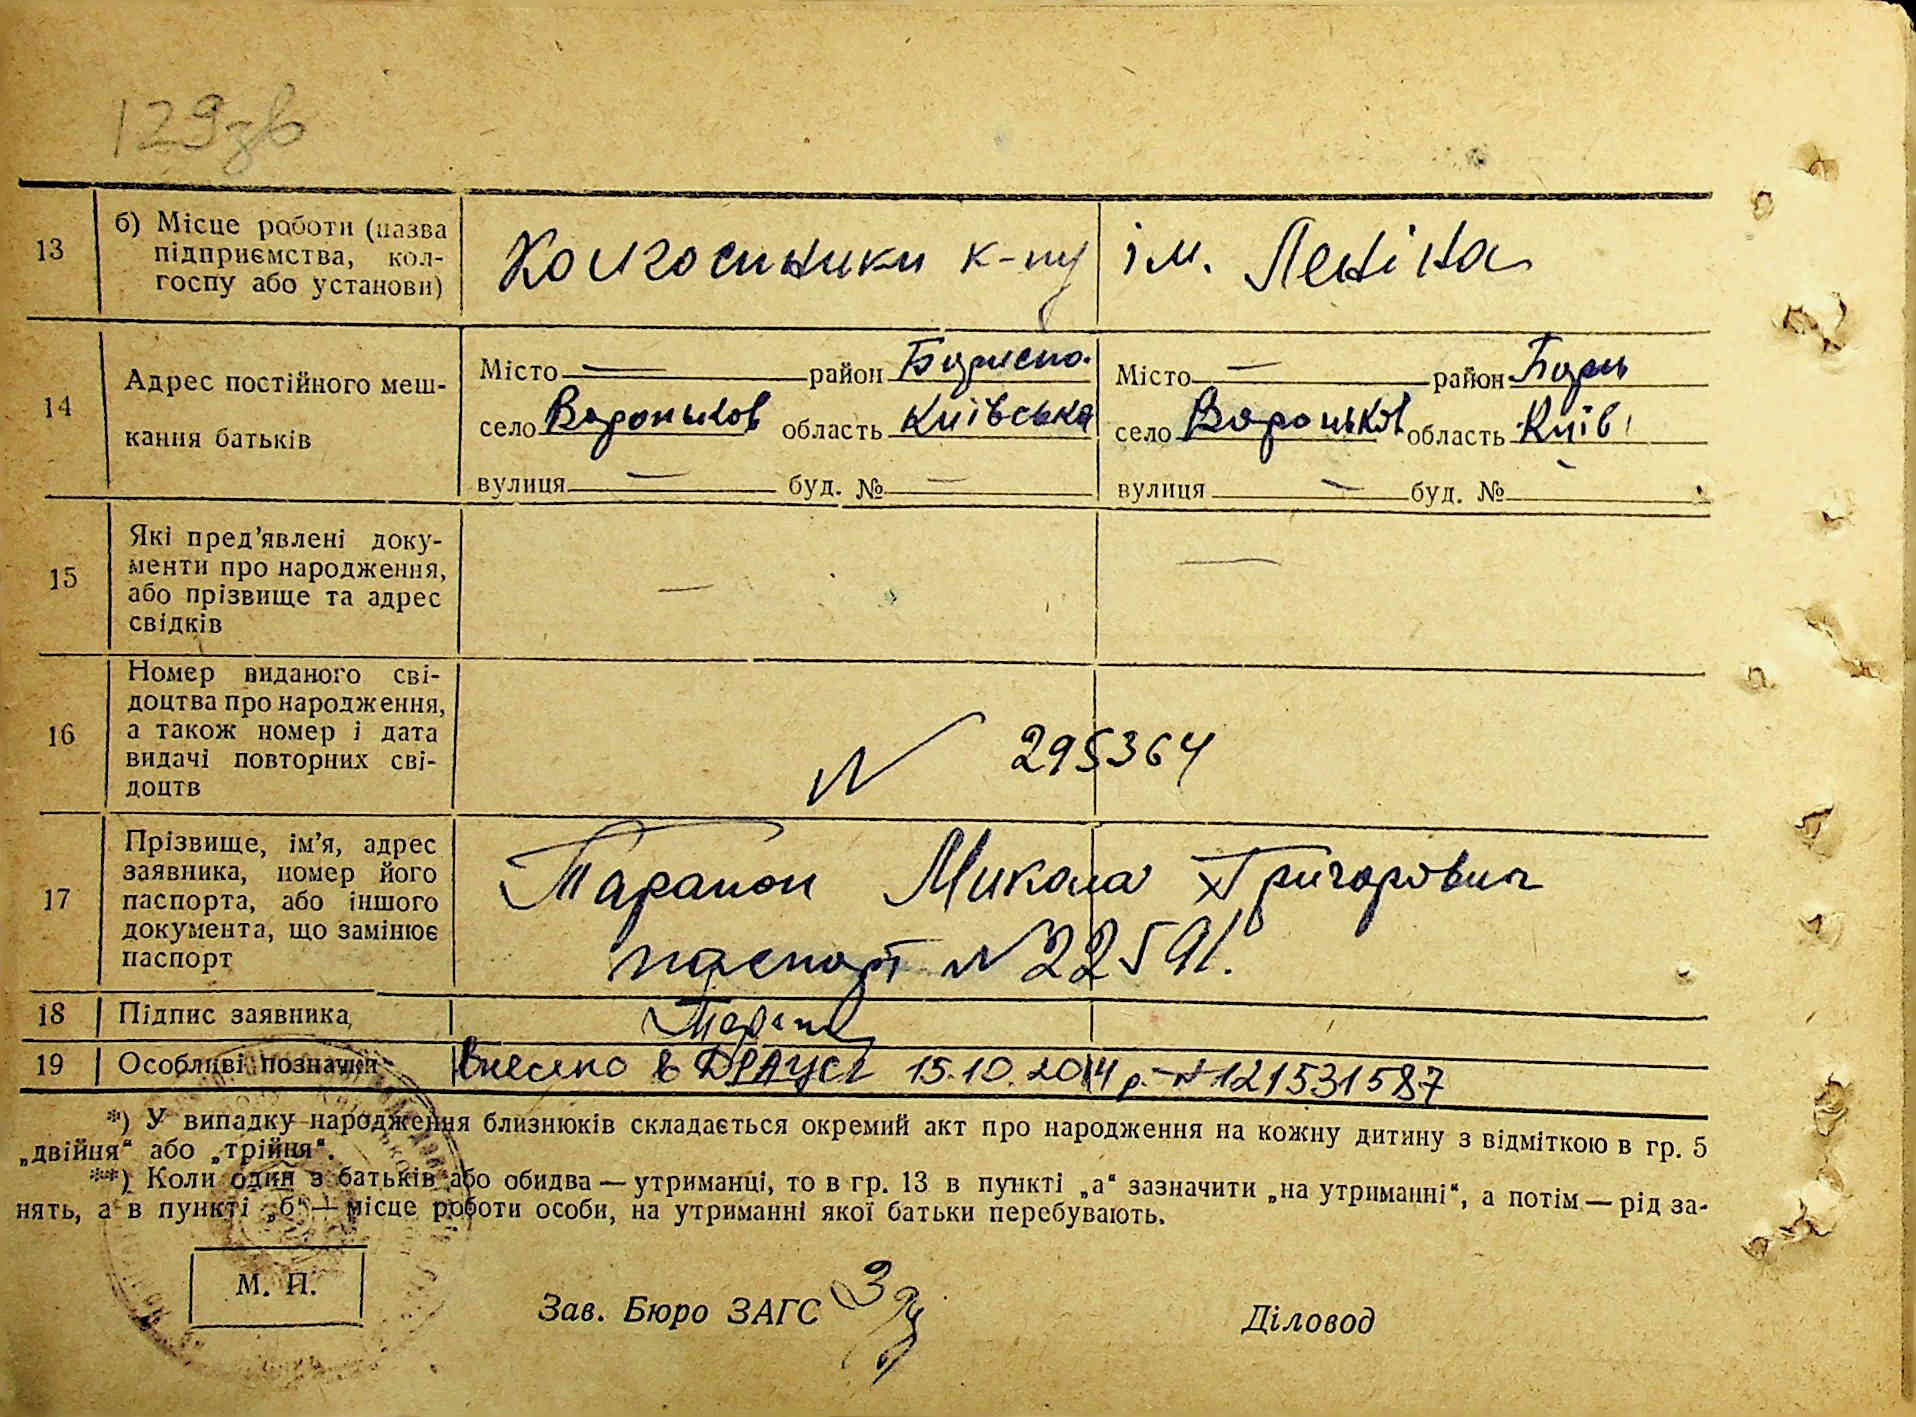 129зв
13 б) Місце роботи (назва підприємства, колгоспу або установи) Колгоспники к-пу ім. Леніна
14 Адрес постійного мешкання батьків
Місто — район Бориспо. Місто — район Бори
село Вороньков область Київська село Вороньков область Київ
вулиця — буд. № — вулиця — буд. №
15 Які пред’явлені доку-
менти про народження,
або прізвище та адрес
свідків — —
16 Номер виданого сві-
доцтва про народження,
а також номер і дата
видачі повторних сві-
доцтв
N 295364
17 Прізвище, ім’я, адрес
заявника, номер його
паспорта, або іншого
документа, що замінює
паспорт
Таранон Микола Григорович
паспорт N 22591.
18 Підпис заявника
19 Особливі позначки Внесено в ДРАЦСГ 15.10.2014 р. N 121531587
*) У випадку народження близнюків складається окремий акт про народження на кожну дитину з відміткою в гр. 5
„двійня“ або „трійня“.
**) Коли один з батьків або обидва — утриманці, то в гр. 13 в пункті „а“ зазначити „на утриманні“, а потім — рід за-
нять, а в пункті „б“ — місце роботи особи, на утриманні якої батьки перебувають.
М. П.
Зав. Бюро ЗАГС Діловод